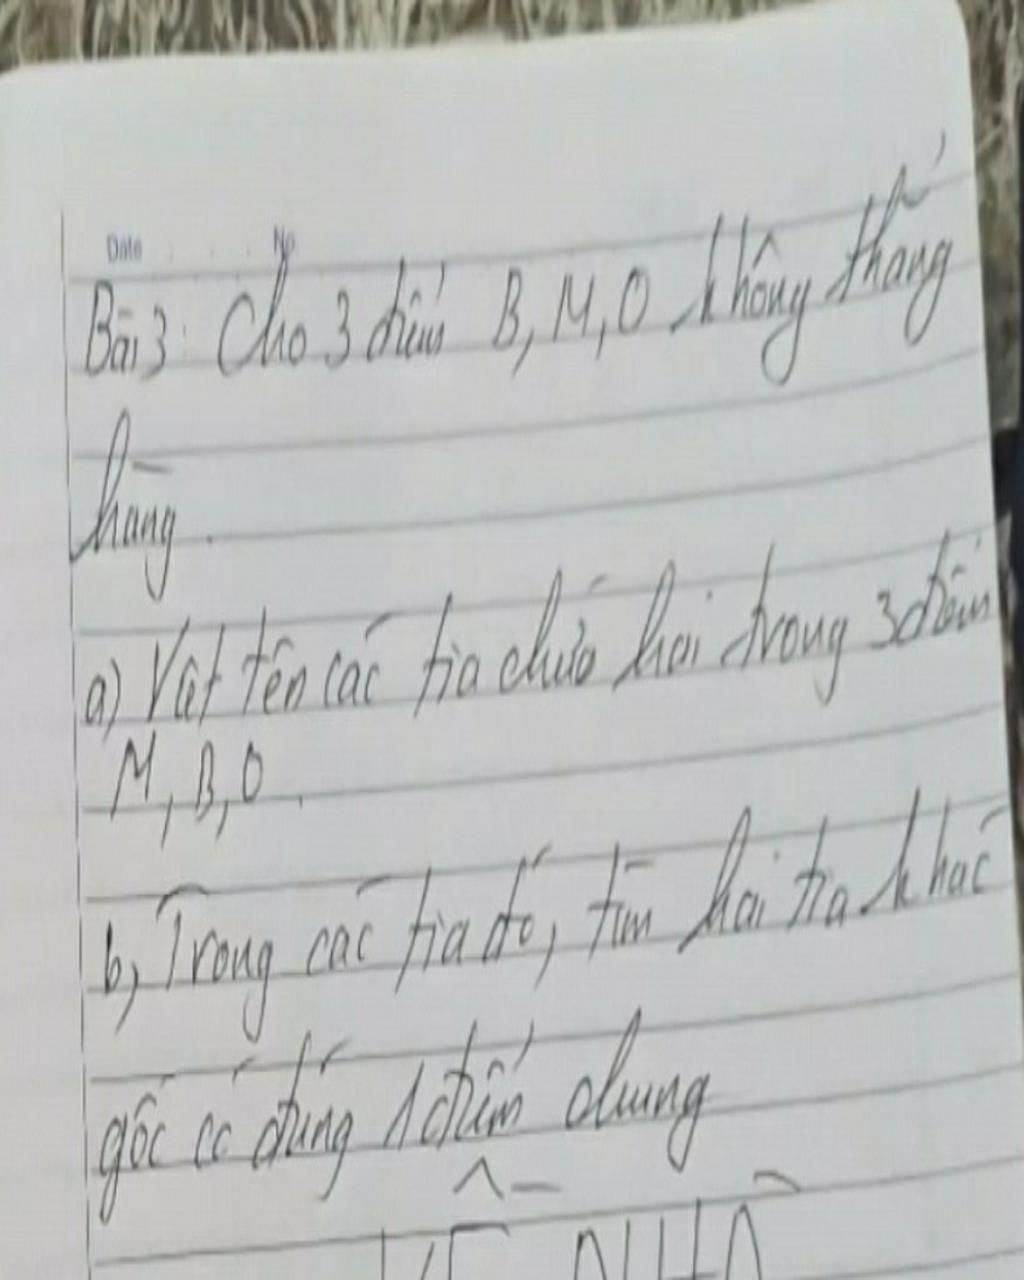 Date No
Bài 3: Cho 3 điểm B, M, O không thẳng
hàng.
a) Viết tên các tia chứa hai trong 3 điểm
M, B, O.
b, Trong các tia đó, tìm hai tia khác
gốc có đúng 1 điểm chung
VỀ NHÀ